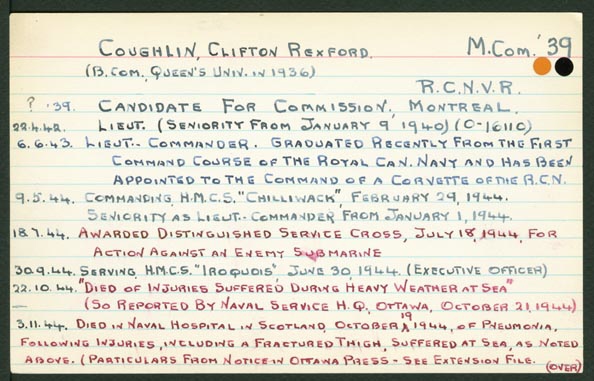 COUGHLIN, CLIFTON REXFORD. M.COM.'39
(B.COM, QUEEN'S UNIV. IN 1936)
R.C.N.V.R.
? '39. CANDIDATE FOR COMMISSION, MONTREAL.
22.4.42. LIEUT. (SENIORITY FROM JANUARY 9, 1940) (O-16110)
6.6.43. LIEUT.-COMMANDER. GRADUATED RECENTLY FROM THE FIRST
COMMAND COURSE OF THE ROYAL CAN. NAVY AND HAS BEEN
APPOINTED TO THE COMMAND OF A CORVETTE OF THE R.C.N.
9.5.44. COMMANDING H.M.C.S. "CHILLIWACK", FEBRUARY 29, 1944.
SENIORITY AS LIEUT.-COMMANDER FROM JANUARY 1, 1944.
18.7.44. AWARDED DISTINGUISHED SERVICE CROSS, JULY 18, 1944, FOR
ACTION AGAINST AN ENEMY SUBMARINE
30.9.44. SERVING H.M.C.S. "IROQUOIS", JUNE 30, 1944. (EXECUTIVE OFFICER)
22.10.44. "DIED OF INJURIES SUFFERED DURING HEAVY WEATHER AT SEA"
— (SO REPORTED BY NAVAL SERVICE H.Q., OTTAWA, OCTOBER 21, 1944)
3.11.44. DIED IN NAVAL HOSPITAL IN SCOTLAND, OCTOBER 19 1944, OF PNEUMONIA,
FOLLOWING INJURIES, INCLUDING A FRACTURED THIGH, SUFFERED AT SEA, AS NOTED
ABOVE. (PARTICULARS FROM NOTICE IN OTTAWA PRESS - SEE EXTENSION FILE.
(OVER)